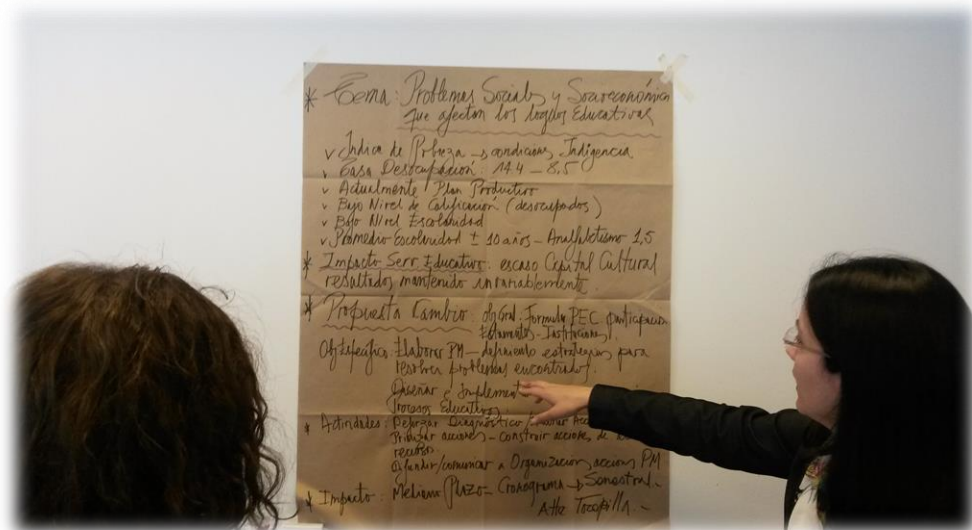 * Tema: Problemas Sociales y Socioeconómicos
que afectan los logros Educativos
v Indice de Pobreza → condiciones Indigencia
v Tasa Desocupación: 14.4 – 8.5
v Actualmente Plan Productivo
v Bajo Nivel de Calificación (desocupados)
v Bajo Nivel Escolaridad
v Promedio Escolaridad ± 10 años – Analfabetismo 1,5
* Impacto Serv. Educativo: escaso Capital Cultural
resultados mantenido invariablemente
* Propuesta Cambio: obj Gral: Formular PEC participación
Estamentos – Instituciones.
Obj Específico: Elaborar PM – definiendo estrategias para
resolver problemas encontrados.
Diseñar e Implement
Procesos Educativos
* Actividades: Reforzar Diagnóstico /
Priorizar acciones – construir acciones de
recursos
Difundir/comunicar a Organización acciones PM
* Impacto: Mediano Plazo – Cronograma → Semestral –
Tocopilla. –